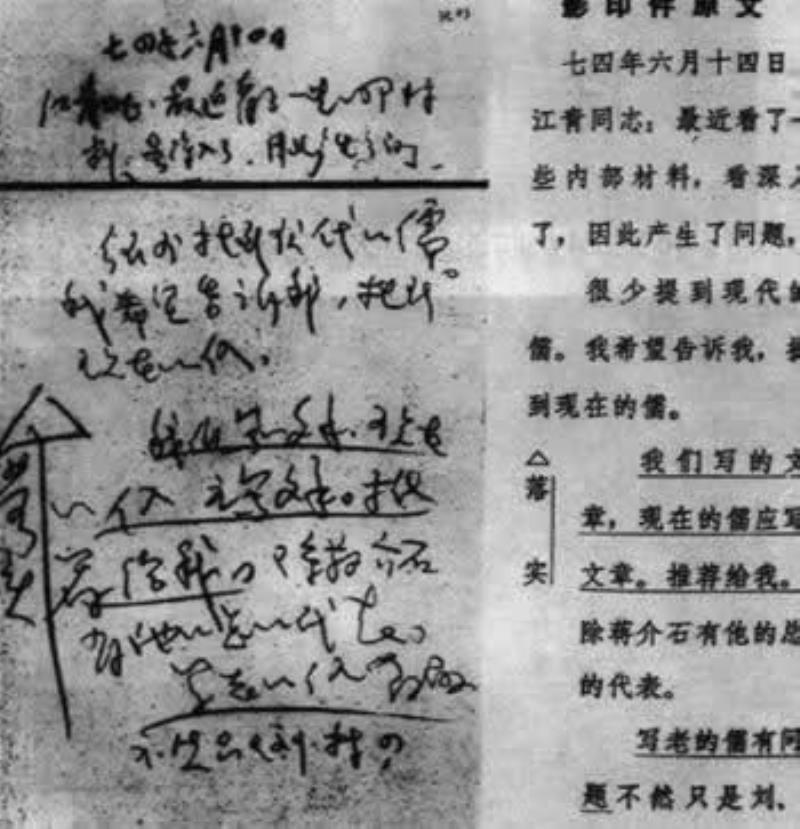 七四年六月十四日
江青同志：最近看了一些内部材
料，看深入了，因此产生了问题。
很少提到现代的儒。
我希望告诉我，提到
现在的儒。
我们写的文章，现在
的儒应写文章。推
荐给我。除蒋介石
有他的总的代表。
写老的儒有问题
不然只是刘、林的
落实
影印件原文
七四年六月十四日
江青同志：最近看了一
些内部材料，看深入
了，因此产生了问题，
很少提到现代的
儒。我希望告诉我，提
到现在的儒。
△落实
我们写的文
章，现在的儒应写
文章。推荐给我。
除蒋介石有他的总
的代表。
写老的儒有问
题不然只是刘、